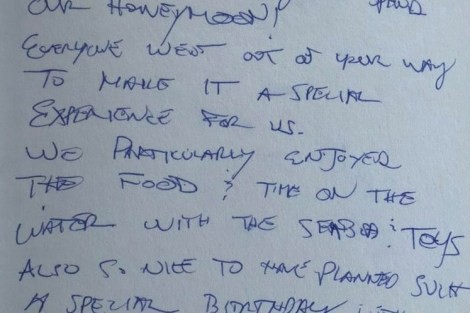 OUR HONEYMOON! AND
EVERYONE WENT OUT OF YOUR WAY
TO MAKE IT A SPECIAL
EXPERIENCE FOR US.
WE PARTICULARLY ENJOYED
THE FOOD & TIME ON THE
WATER WITH THE & TOYS
ALSO SO NICE TO HAVE PLANNED SUCH
A SPECIAL BIRTHDAY